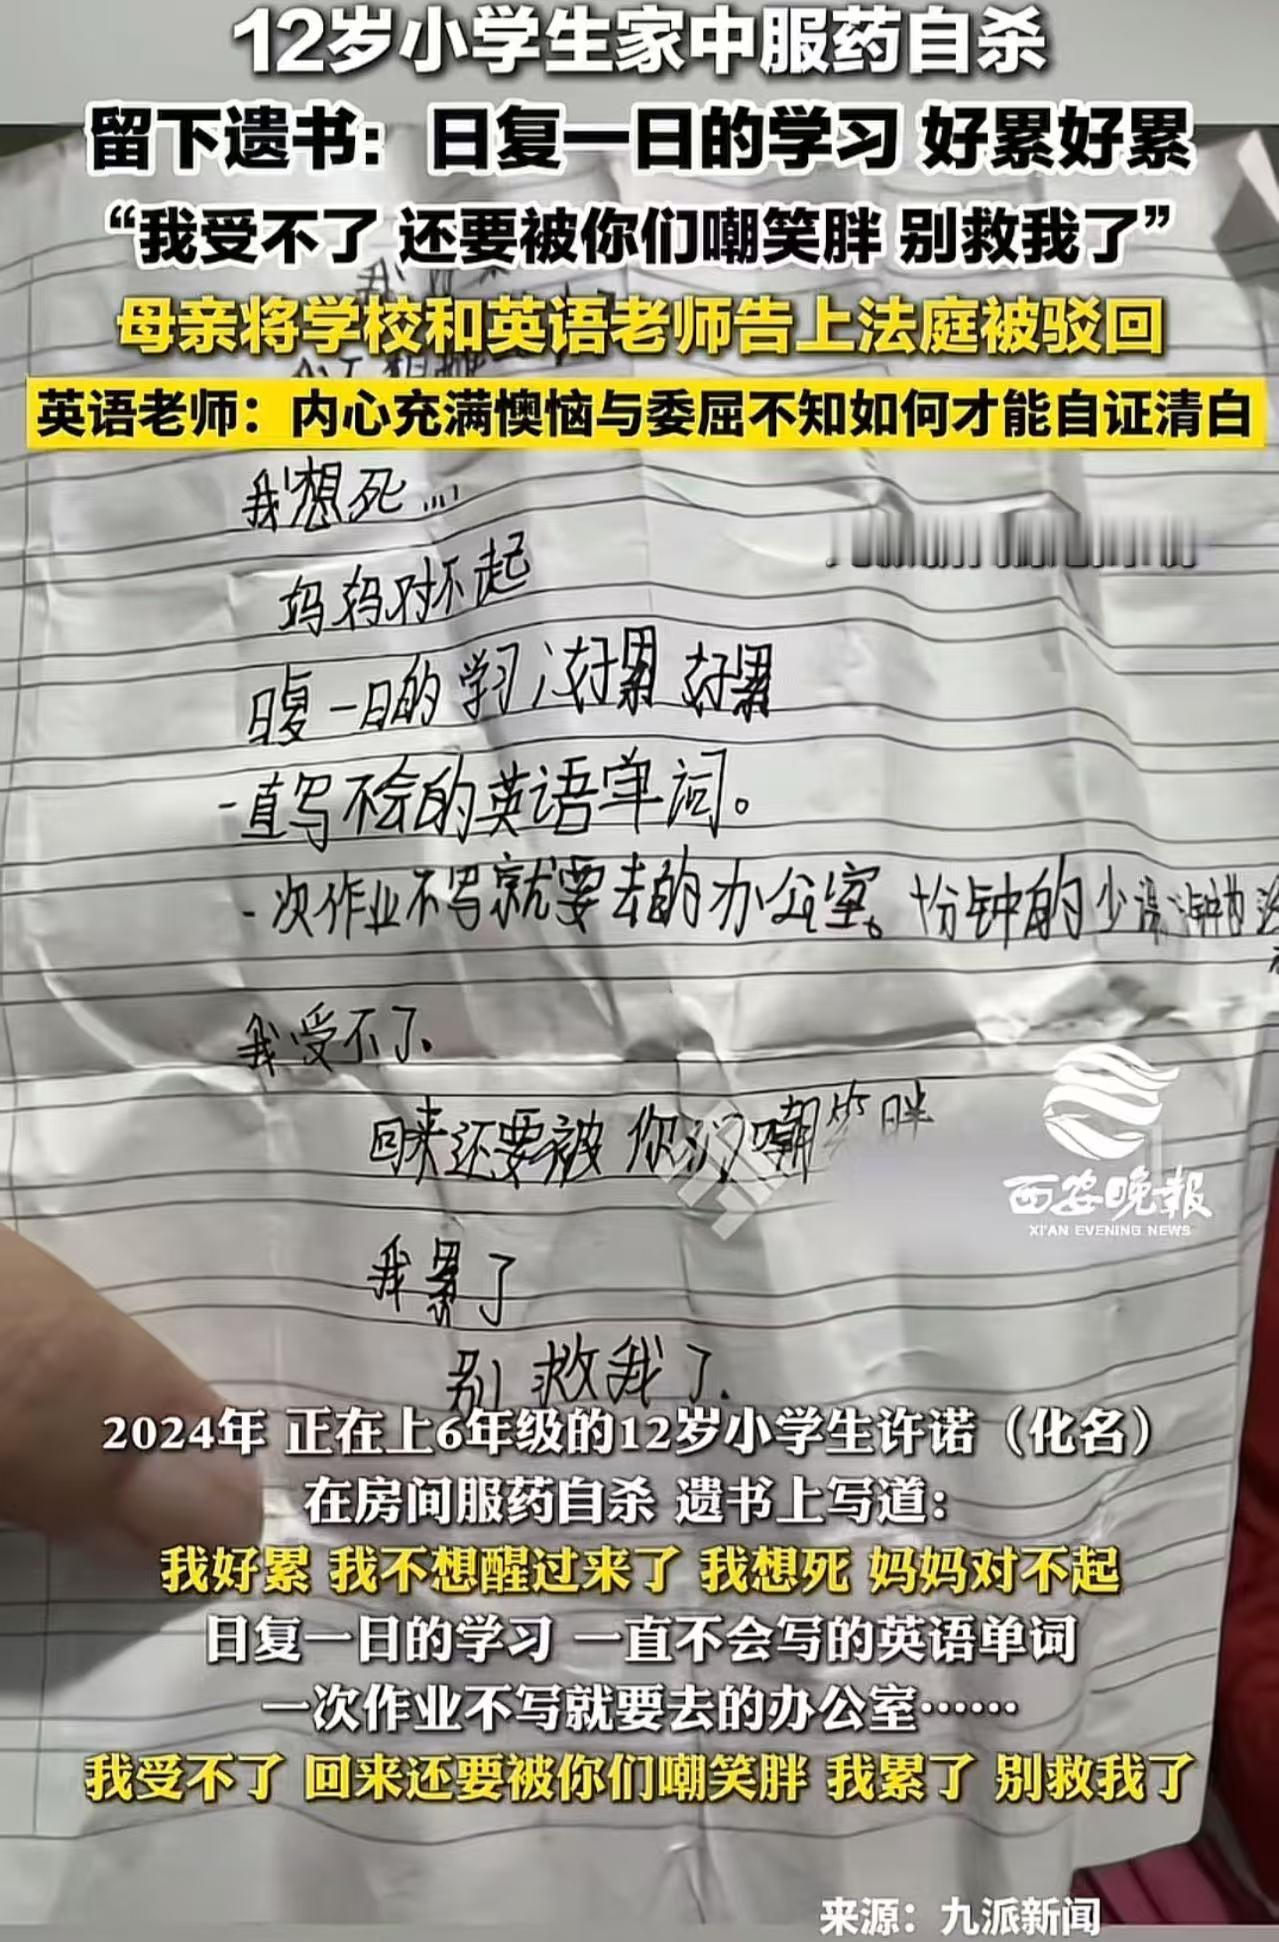 12岁小学生家中服药自杀
留下遗书：日复一日的学习 好累好累
“我受不了 还要被你们嘲笑胖 别救我了”
母亲将学校和英语老师告上法庭被驳回
英语老师：内心充满懊恼与委屈不知如何才能自证清白
我想死...
妈妈对不起
日复一日的学习 好累 好累
一直写不会的英语单词。
一次作业不写就要去的办公室。十分钟的
我受不了.
回来还要被你们嘲笑胖
西安晚報
XI'AN EVENING NEWS
我累了
别救我了.
2024年 正在上6年级的12岁小学生许诺（化名）
在房间服药自杀 遗书上写道：
我好累 我不想醒过来了 我想死 妈妈对不起
日复一日的学习 一直不会写的英语单词
一次作业不写就要去的办公室……
我受不了 回来还要被你们嘲笑胖 我累了 别救我了
来源：九派新闻